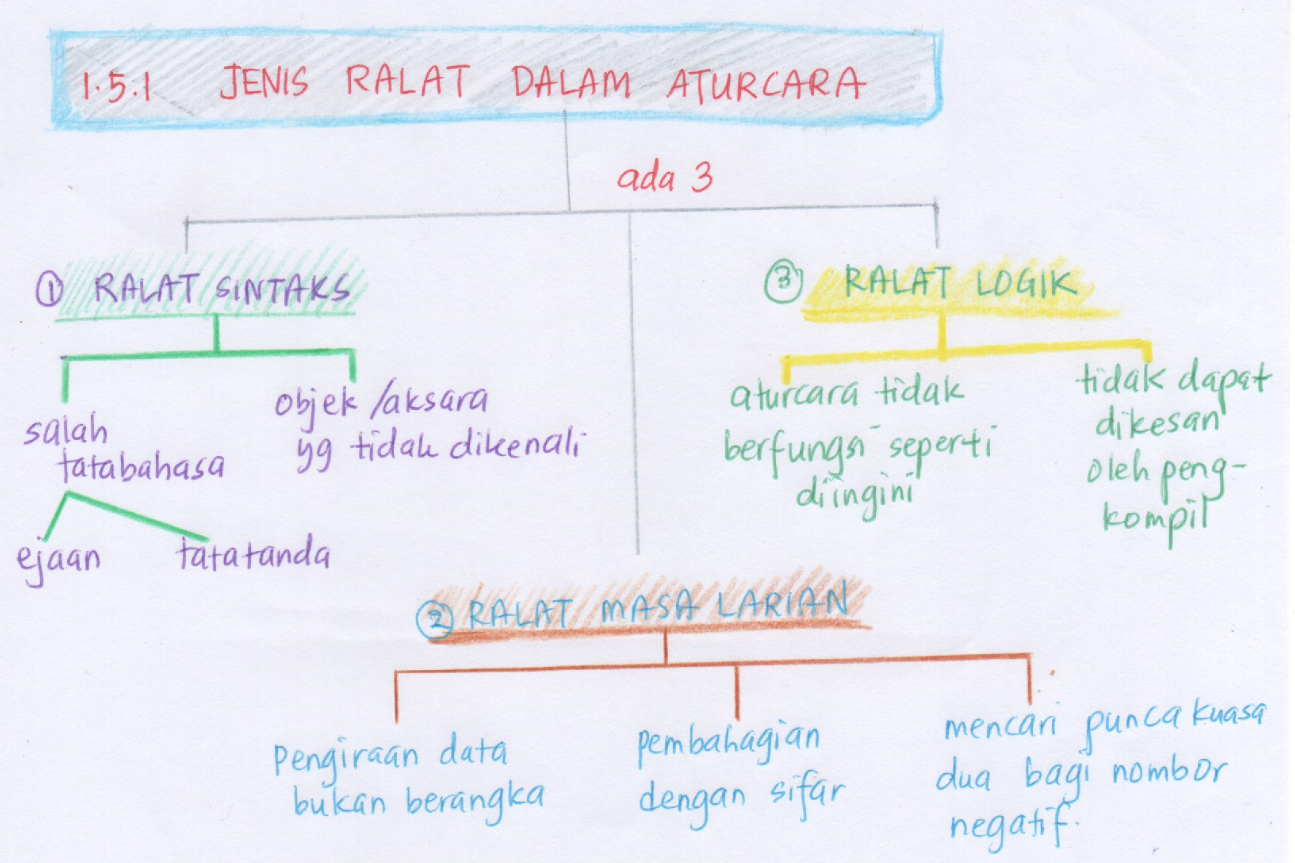 1.5.1 JENIS RALAT DALAM ATURCARA
ada 3
① RALAT SINTAKS
salah
tatabahasa
ejaan
tatatanda
objek/aksara
yg tidak dikenali
② RALAT MASA LARIAN
pengiraan data
bukan berangka
pembahagian
dengan sifar
mencari punca kuasa
dua bagi nombor
negatif.
③ RALAT LOGIK
aturcara tidak
berfungsi seperti
diingini
tidak dapat
dikesan
oleh peng-
kompil